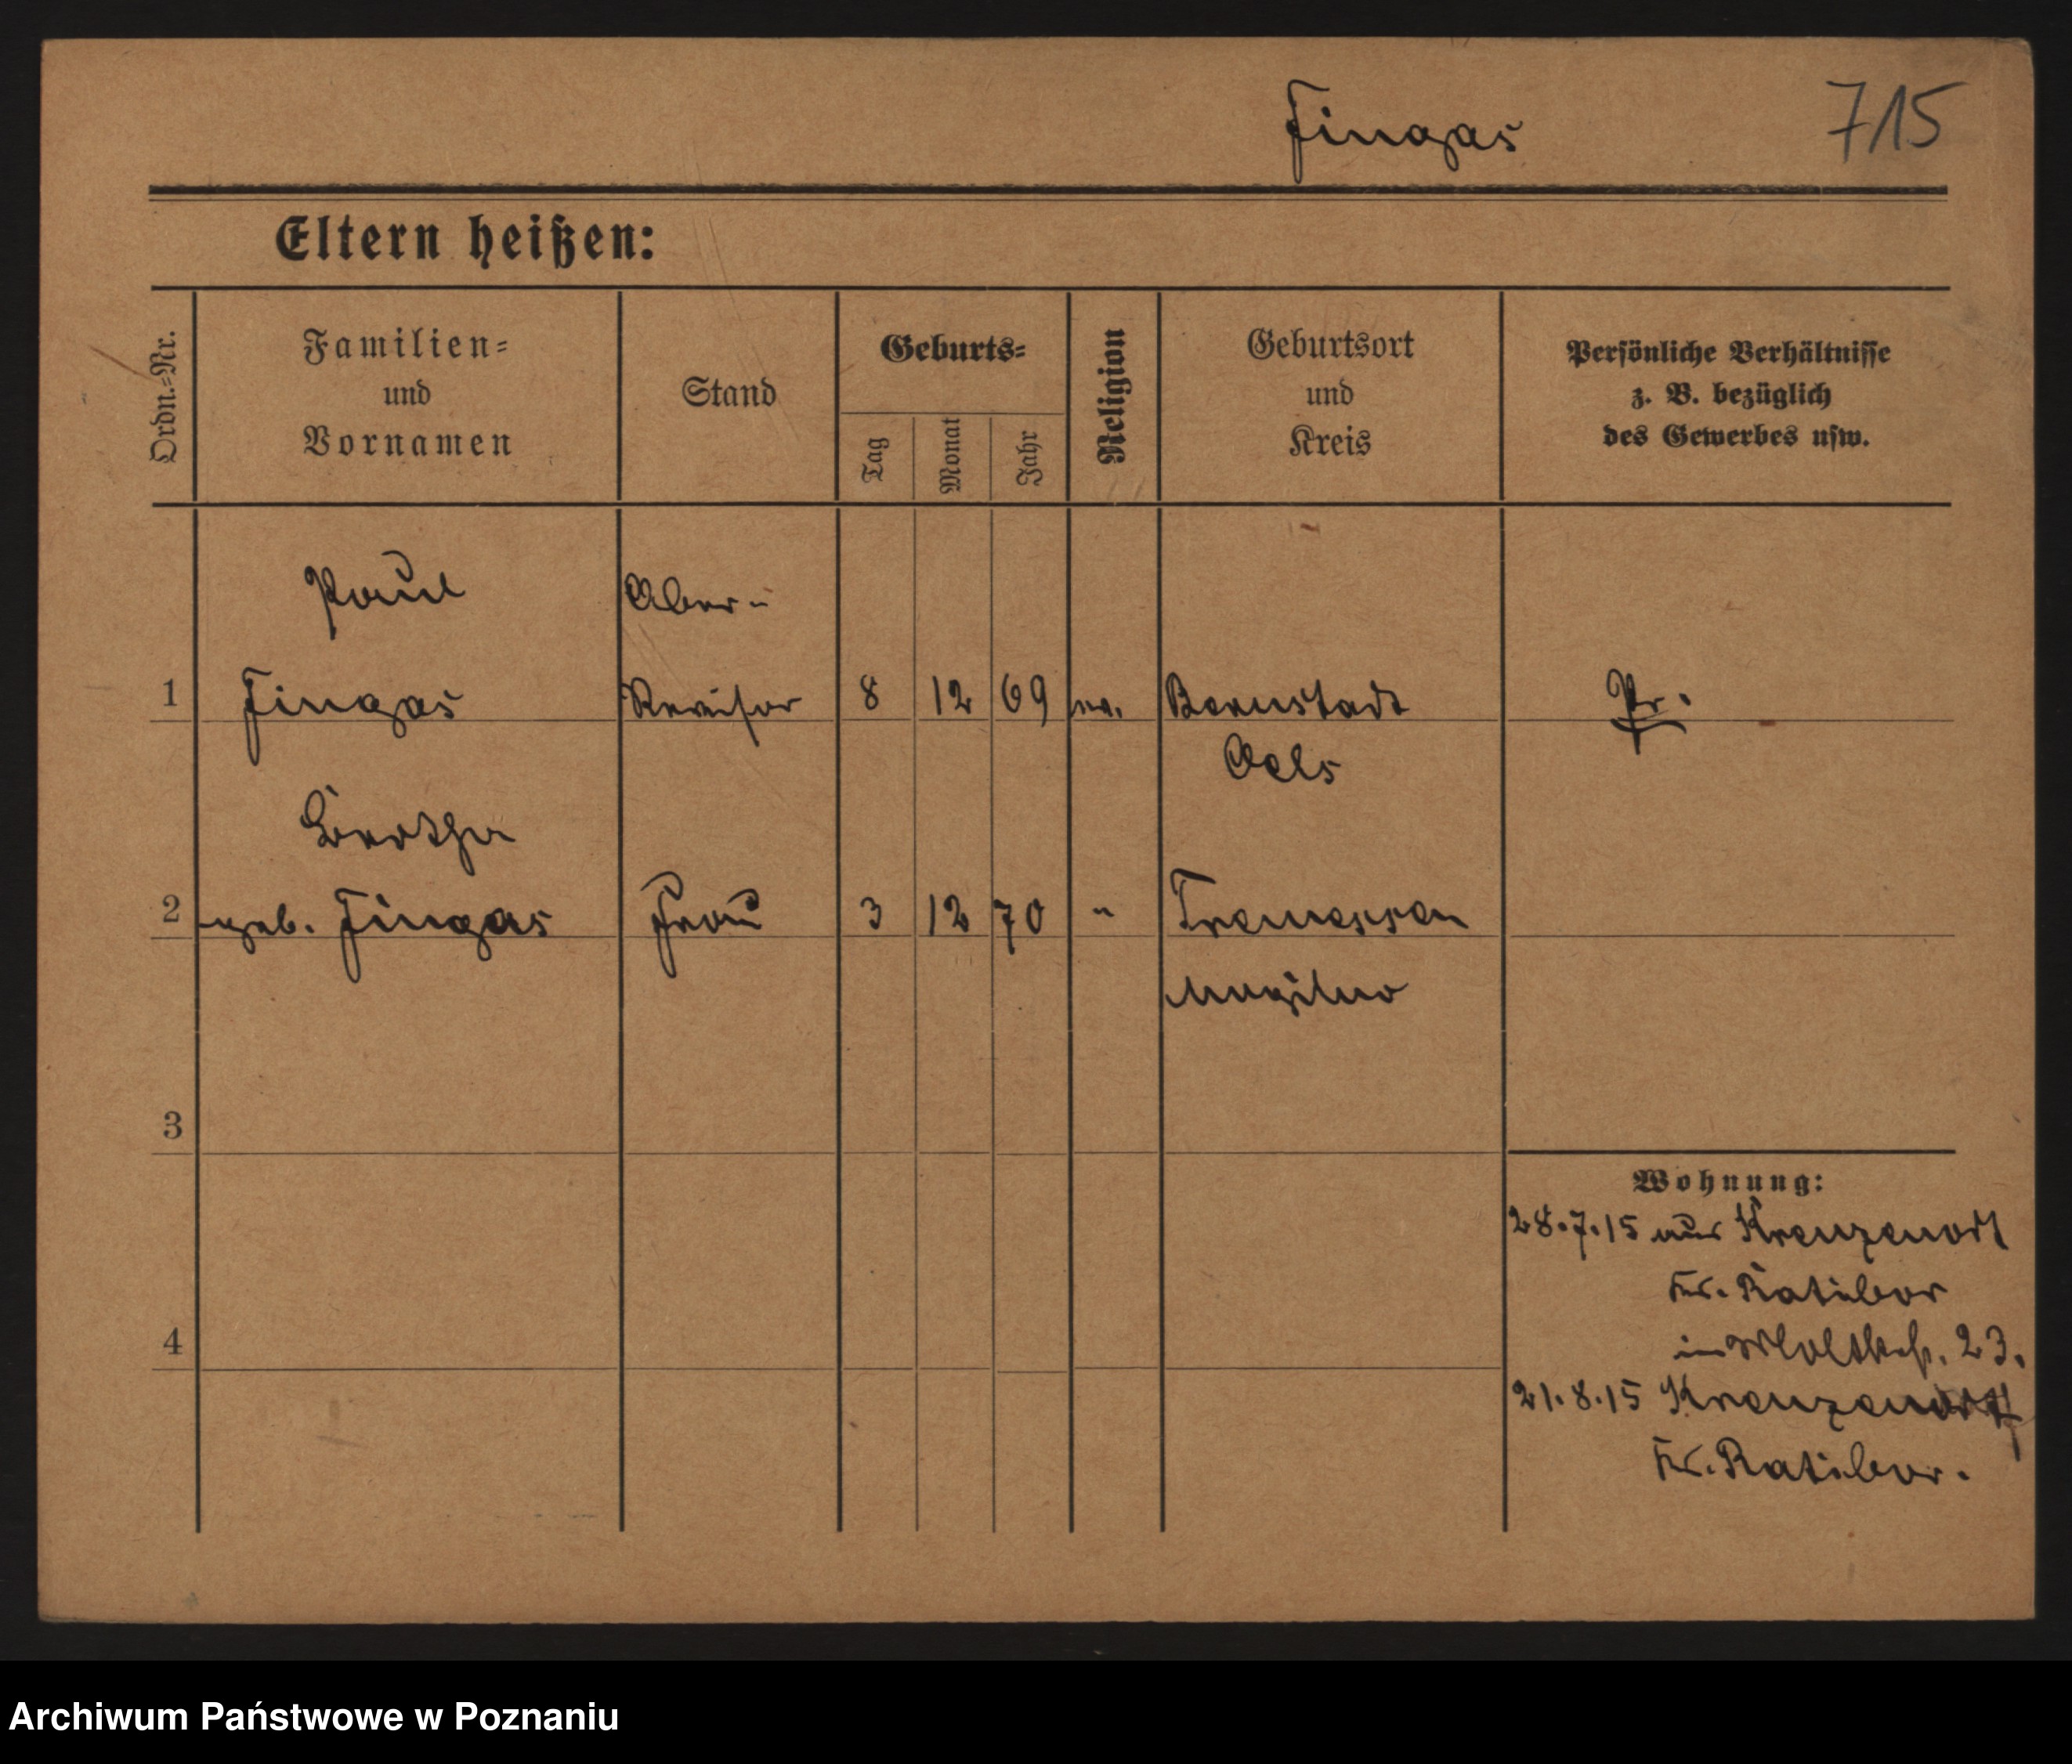 Fingas 715
Eltern heißen:
Ordn.=Nr.
Familien=
und
Vornamen
Stand
Geburts=
Tag
Monat
Jahr
Religion
Geburtsort
und
Kreis
Persönliche Verhältnisse
z. B. bezüglich
des Gewerbes usw.
Paul Ober-
1 Fingas Revisor 8 12 69 ev. Bernstadt Pr.
Oels
Bertha
2 geb. Fingas Frau 3 12 70 " Tremessen
Mogilno
3
4
Wohnung:
28.7.15 aus Kreuzenort
Kr. Ratibor
in Moltkestr. 23.
21.8.15 Kreuzenort
Kr. Ratibor.
Archiwum Państwowe w Poznaniu